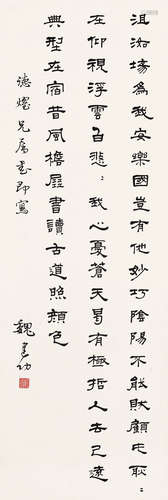 沮洳場為我安樂國豈有他妙巧陰陽不能賊顧此耿〻
在仰視浮雲白悲〻我心憂蒼天曷有極哲人去已遠
典型在宿昔風檐展書讀古道照顏色
德熠兄屬書即寫
魏建功